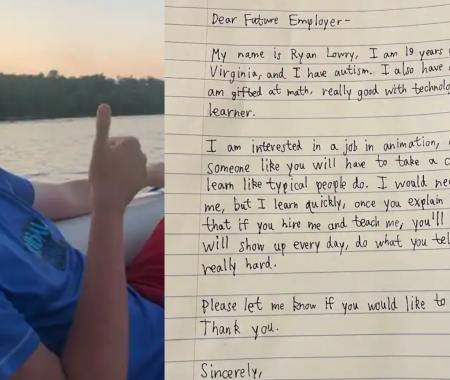 Dear Future Employer-
My name is Ryan Lowry, I am 19 years
Virginia, and I have autism. I also have
am gifted at math, really good with technolo
learner.
I am interested in a job in animation,
someone like you will have to take a c
learn like typical people do. I would ne
me, but I learn quickly, once you explain
that if you hire me and teach me, you'll
will show up every day, do what you tel
really hard.
Please let me know if you would like to
Thank you.
Sincerely,